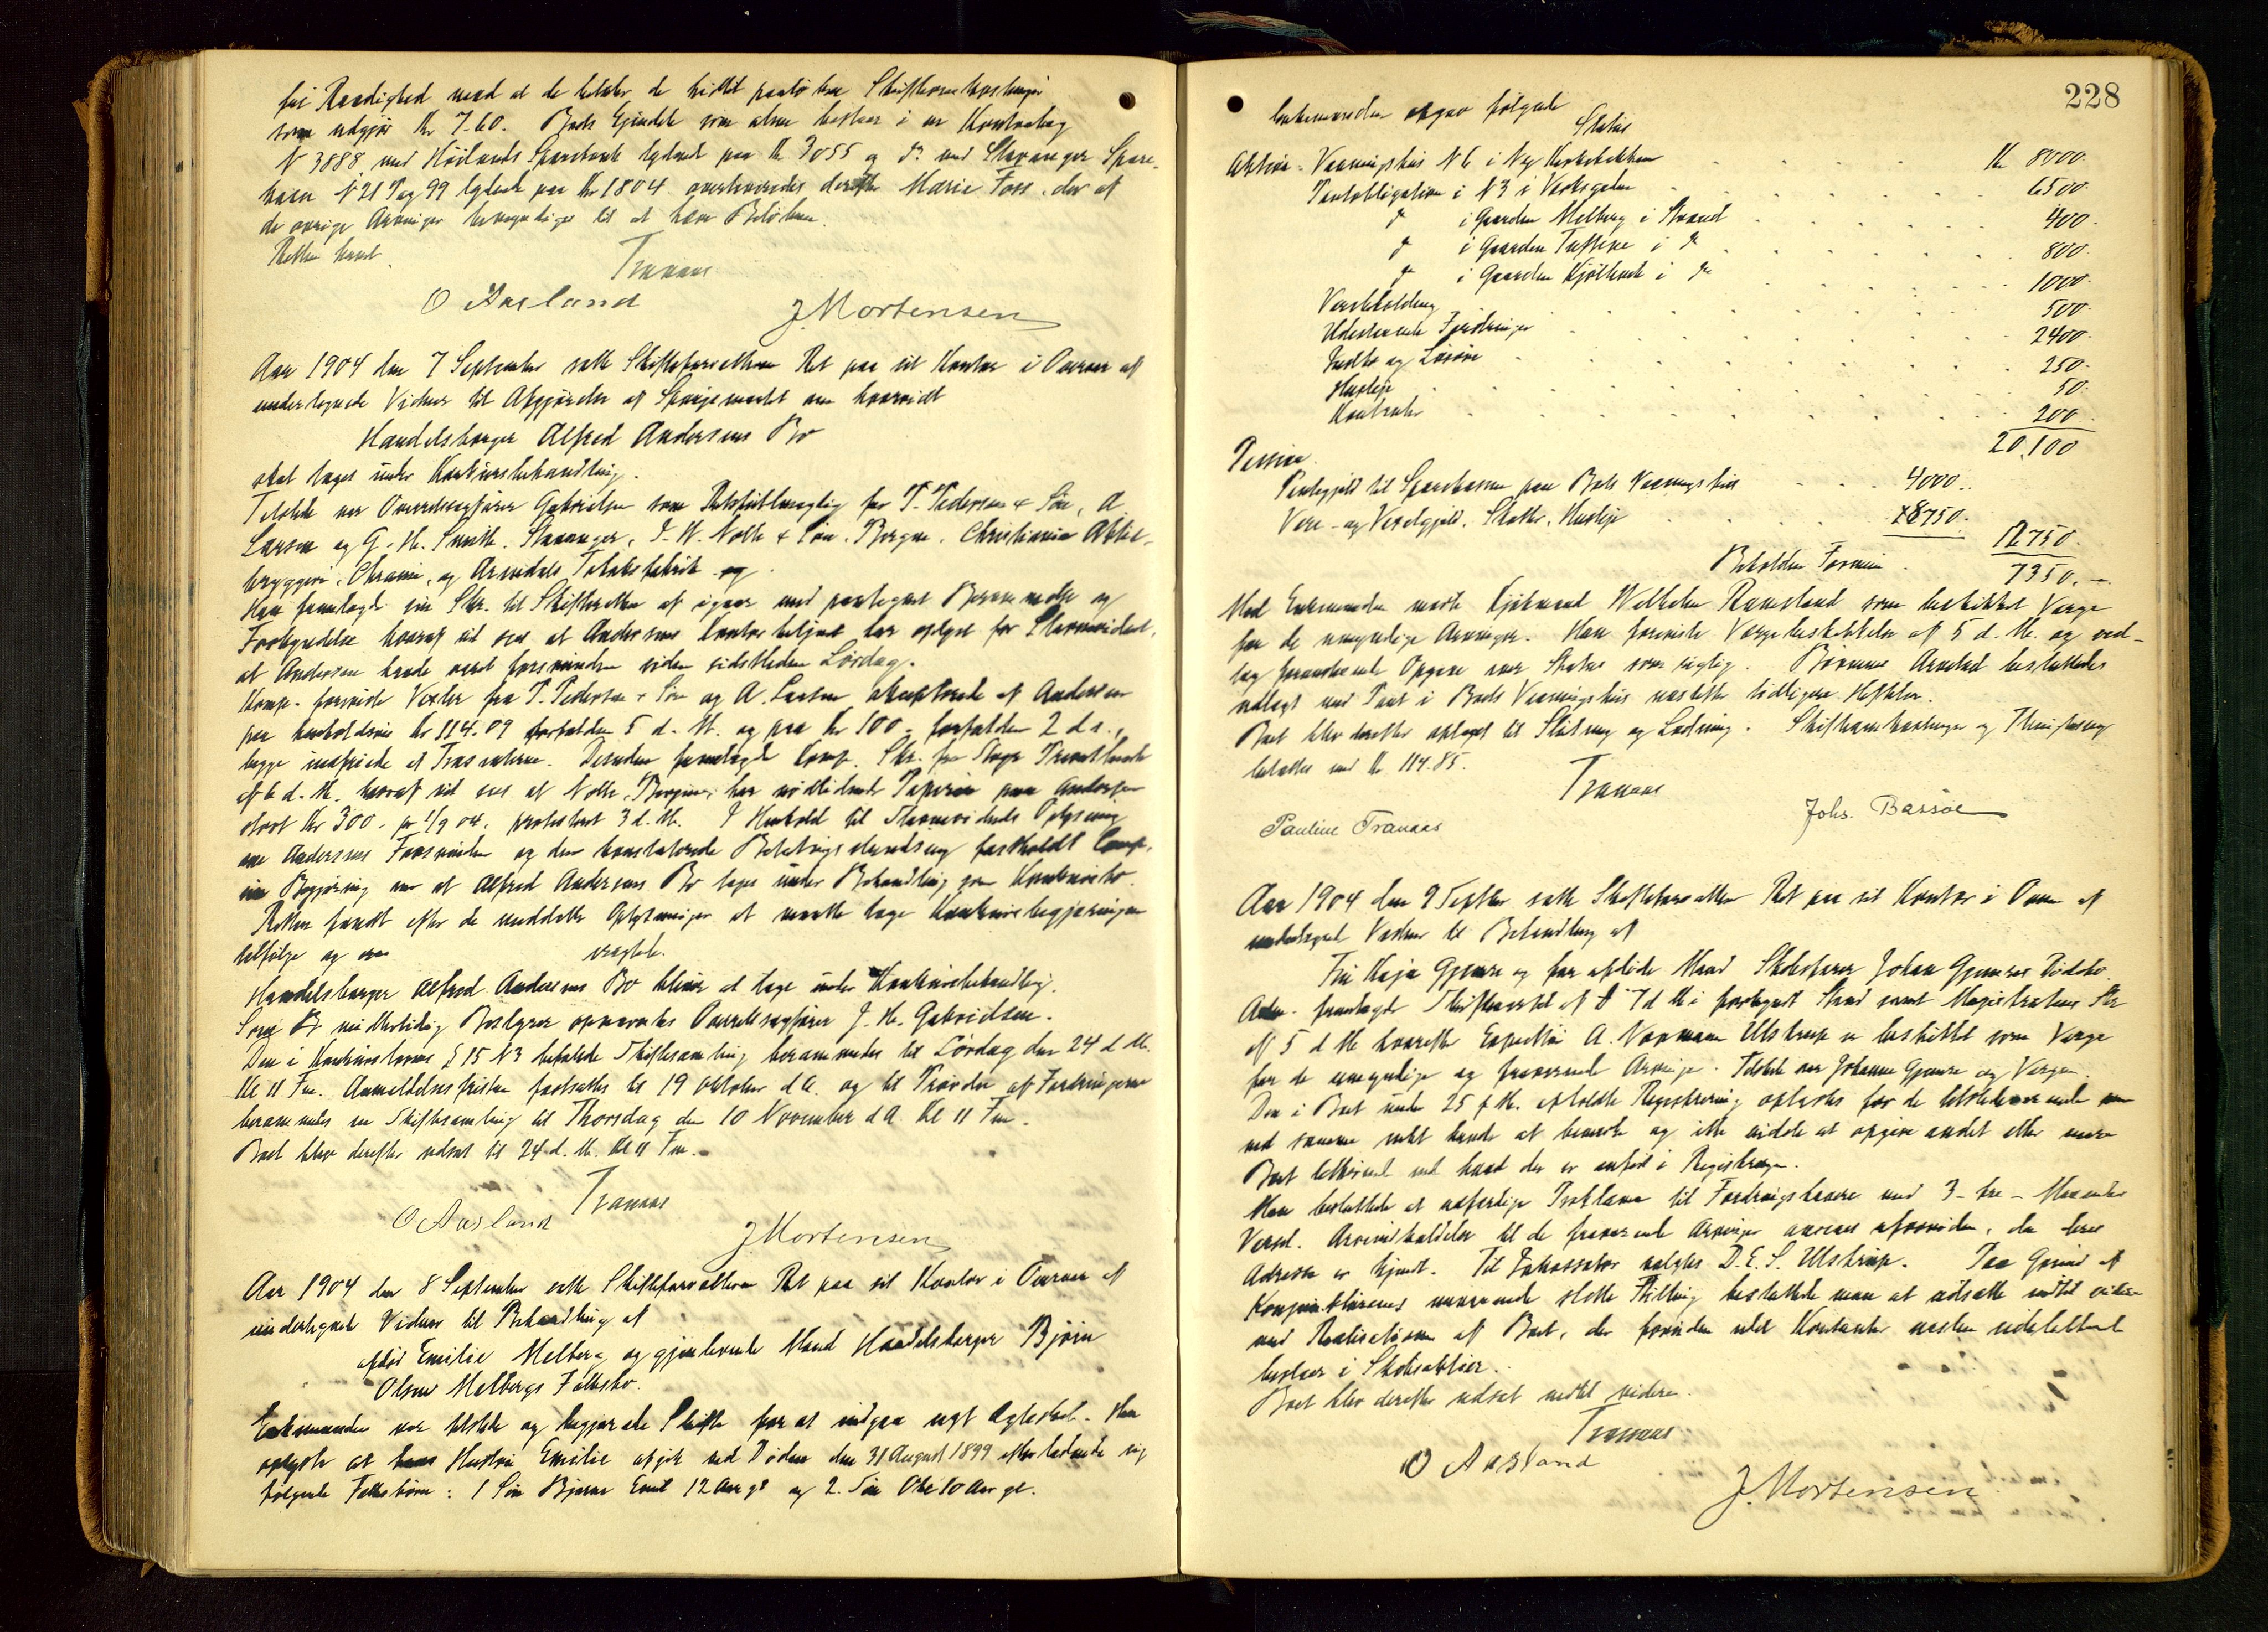 fri Raadighed mod at de betaler de hidtil paaløbne Skifteomkostninger
som udgjør Kr 7.60. Boets Ejendele som alene bestaar i en Kontrabog
N 3888 med Høilands Sparebank lydende paa Kr 3055 og do med Stavanger Spare-
kasse N 21 Pag 99 lydende paa Kr 1804 overleveredes derefter Marie Foss, der af
de øvrige Arvinger bemyndiges til at hæve Beløbene.
Retten hævet.
Tranaas
O Aasland J. Mortensen
Aar 1904 den 7 September satte Skifteforvalteren Ret paa sit Kontor i Overvær af
undertegnede Vidner til Afgjørelse af Spørgsmaalet om hvorvidt
Handelsborger Alfred Andersens Bo
skal tages under Konkursbehandling.
Tilstede var Overretssagfører Gabrielsen som Retsfuldmægtig for T. Pedersen & Søn, A.
Larsen og G. M. Smith, Stavanger, J. W. Nolte & Søn, Bergen, Christiania Aktie-
bryggeri, Chrania, og Arendals Tobaksfabrik
Han fremlagde sin Skr. til Skifteretten af igaar med paategnet Berammelse og
Forkyndelse hvoraf vil sees at Andersens Kontorbetjent har oplyst for Stævnevidnet,
at Andersen havde været forsvunden siden sidstleden Lørdag.
Komp. foreviste Vexler fra T. Pedersen & Søn og A. Larsen akcepterede af Andersen
paa henholdsvis Kr 114.09 forfalden 5 d. M. og paa Kr 100 - forfalden 2 d. s.,
begge indfriede af Trassenterne. Desuden fremlagde Comp. Skr. fra Privatbank
af 6 d. M. hvoraf vil sees at Nolte, Bergen, har nødlidende Papirer paa Andersen
stort Kr 300. pr 1/9 04, protesteret 3 d. M. I Henhold til Stævnevidnets Oplysning
om Andersens Forsvinden og den konstaterede Betalingsstandsning fastholdt Comp.
sin Begjæring om at Alfred Andersens Bo tages under Behandling som Konkursbo.
Retten fandt efter de meddelte Oplysninger at maatte tage Konkursbegjæringen
tilfølge og saa
eragtet.
Handelsborger Alfred Andersens Bo bliver at tage under Konkursbehandling.
Som midlertidig Bestyrer opnævntes Overretssagfører J. M. Gabrielsen.
Den i Konkurslovens § 15 N 3 befalede Skiftesamling berammedes til Lørdag den 24 d. M.
Kl 11 Fm. Anmeldelsesfristen fastsattes til 19 Oktober d A. og til Prøvelse af Fordringerne
berammedes en Skiftesamling til Thorsdag den 10 November d A. Kl 11 Fm.
Boet blev derefter udsat til 24 d. M. Kl 11 Fm.
Tranaas
O Aasland J. Mortensen
Aar 1904 den 8 September satte Skifteforvalteren Ret paa sit Kontor i Overvær af
undertegnede Vidner til Behandling af
afdød Emilie Melberg og gjenlevende Mand Handelsborger Bjørn
Olsen Melbergs Fællesbo.
Enkemanden var tilstede og begjærede Skifte for at indgaa nyt Ægteskab. Han
oplyste at hans Hustru Emilie afgik ved Døden den 31 August 1899 efterladende sig
følgende Fællesbørn: 1 Søn Bjarne Emil 12 Aar gl og 2. Søn Ole 10 Aar gl.
228
Enkemanden opgav følgende
Status
Aktiva. Vaaningshus N 6 i Ny Kirkebakken Kr 8000.
Pantobligation i N 3 i Verksgaden 6500.
do i Gaarden Melberg i Strand 400.
do i Gaarden Tuftene i do 800.
do i Gaarden Kjølland i do 1000.
Varebeholdning 500.
Udestaaende Fordringer 2400.
Indbo og Løsøre 250.
Husleje 50.
Kontanter 200
20,100
Passiva.
Pantegjæld til Sparekassen paa Boets Vaaningshus 4000.
Vare- og Vexelgjæld, Skatter, Husleje 8750.
12,750.
Beholden Formue 7350.-
Med Enkemanden mødte Kjøbmand Wilhelm Ramsland som beskikket Værge
for de umyndige Arvinger. Han foreviste Værgebeskikkelse af 5 d. M. og ved-
tog foranstaaende Opgave over Status som rigtig. Børnenes Arvelod besluttedes
udlagt med Pant i Boets Vaaningshus næstefter tidligere Heftelser.
Boet blev derefter optaget til Slutning og Lodning. Skifteomkostninger og Thinglæsning
betaltes med Kr 114.85.
Tranaas
Pauline Tranaas Johs. Bassøe
Aar 1904 den 9 Septbr satte Skifteforvalteren Ret paa sit Kontor i Overvær af
undertegnede Vidner til Behandling af
Fru Kaja Gjemre og før afdøde Mand Skibsfører Johan Gjemres Dødsbo
Adm. fremlagde Skifteværtel af 7 d M i paategnet Stand samt Magistratens Skr
af 5 d M hvorefter Expeditør A. Normann Ulstrup er beskikket som Værge
for de umyndige og fraværende Arvinger. Tilstede var Johanne Gjemre og Værgen.
Den i Boet under 25 f. M. afholdte Registrering oplæstes for de tilstedeværende som
ved samme intet havde at bemærke og ikke vidste at opgive andet eller mere
Boet tilhørende end hvad der er anført i Registreringen.
Man besluttede at udfærdige Proklama til Fordringshavere med 3 - tre - Maaneders
Varsel. Arveindkaldelse til de fraværende Arvinger ansees ufornøden, da deres
Adresse er kjendt. Til Inkassator valgtes D. E. S. Ulstrup. Paa Grund af
Konjunkturernes nuværende slette Stilling besluttede man at udsætte indtil videre
med Realisationen af Boet, der foruden lidt Kontanter næsten udelukkende
bestaar i Skibsaktier.
Boet blev derefter udsat indtil videre.
Tranaas
O Aasland
J. Mortensen